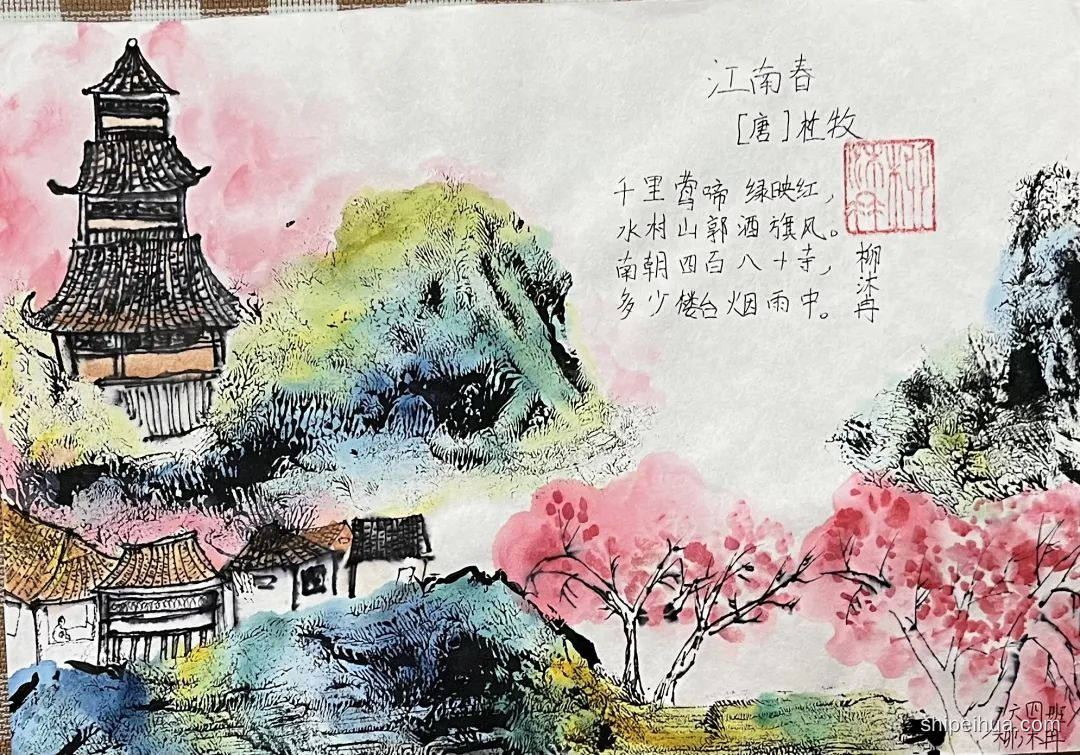 江南春
[唐]杜牧
千里莺啼绿映红，
水村山郭酒旗风。
南朝四百八十寺，
多少楼台烟雨中。
柳沐冉
柳沐冉
shipeihua.com
柳沐冉